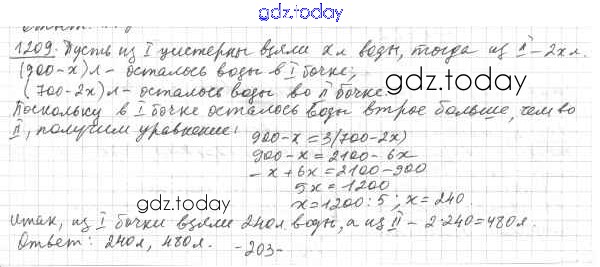 gdz.today
1209. Пусть из I цистерны взяли х л воды, тогда из II – 2х л.
(900-х)л - осталось воды в I бочке;
(700-2х)л - осталось воды во II бочке.
gdz.today
Поскольку в I бочке осталось воды втрое больше, чем во
II, получим уравнение:
900-х = 3(700-2х)
900-х = 2100-6х
-х+6х = 2100-900
5х = 1200
х = 1200:5; х = 240.
gdz.today
Итак, из I бочки взяли 240л воды, а из II – 2·240=480л.
Ответ: 240л, 480л.
-203-